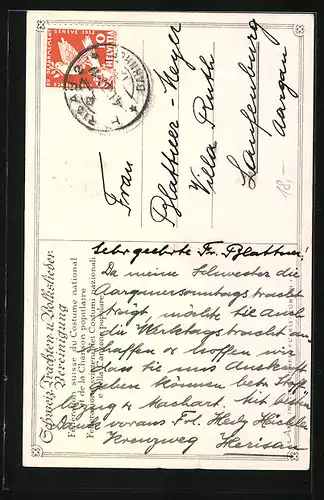 HELVETIA
10
GENÈVE 1932
Frau
Blattner-Meyer
Villa Ruth
Laufenburg
Aargau
18,-
Schweiz. Trachten u. Volkslieder-
Vereinigung
Fédération suisse du Costume national
et de la Chanson populaire
Federazione svizzera dei Costumi nazionali
e della Canzone popolare
Sehr geehrte Fr. Blattner!
Da meine Schwester die
Aargauersonntags tracht
trägt, möchte sie auch
die Werktagstracht an-
schaffen & hoffen wir
dass Sie uns Auskunft
geben können betr. Stoff-
bezug & Machart. Mit bestem
Dank voraus Frl. Hedy
Kreuzweg Herisau